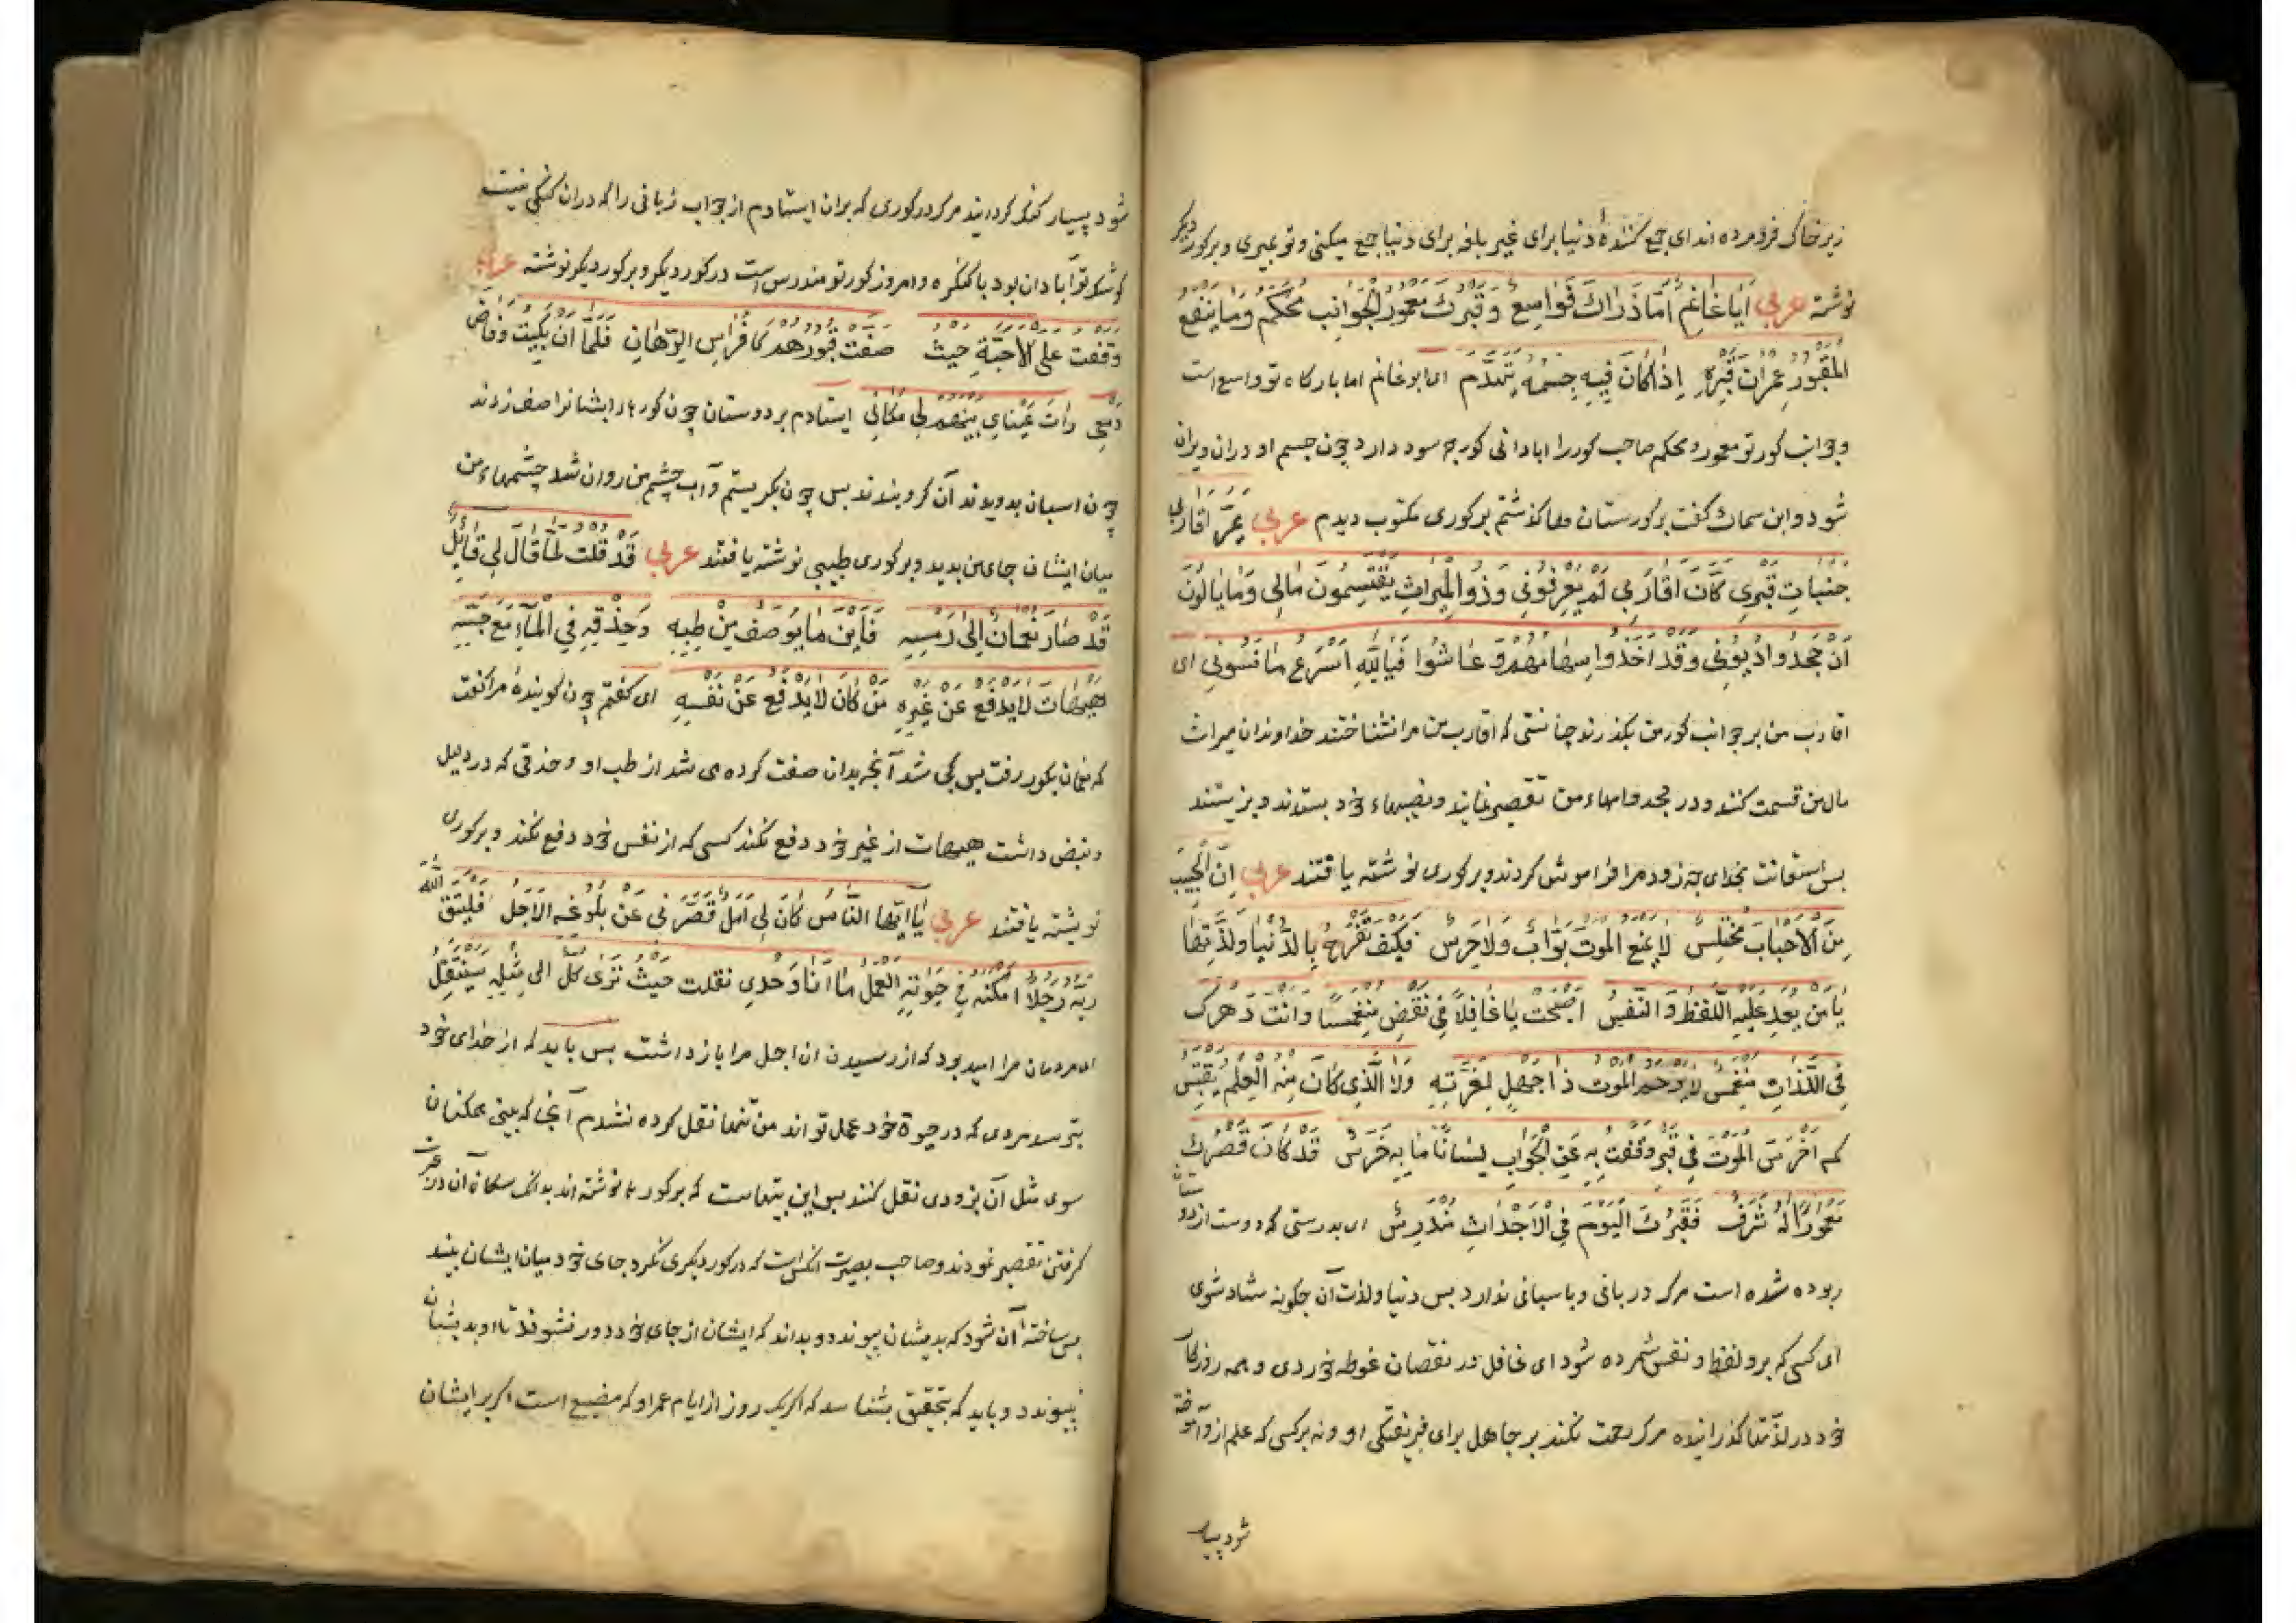 زیر خاک فرو مرده اند ای جمع کنندهٔ دنیا برای غیر بلغه برای دنیا جمع میکنی و تو بمیری و برکور دیکر
نوشته عربي أَیَا غَانِمُ أَمَّا ذَرَاكَ فَوَاسِعٌ وَقَبْرُكَ مَعْمُورُ الْجَوَانِبِ مُحْكَمُ وَمَا يَنْفَعُ
الْمَقْبُورَ عِمْرَانُ قَبْرِهِ إِذَا كَانَ فِيهِ جِسْمُهُ يَتَهَدَّمُ ای ابو غانم اما بارکاه تو واسع است
و جوانب کور تو معمور و محکم صاحب کور را ابادانی کور چه سود دارد چون جسم او دران ویران
شود و ابن سماك کفت برکورستان مها کذشتم برکوری مکتوب دیدم عربي يَمُرُّ أَقَارِبِي
جَنَبَاتِ قَبْرِي كَأَنَّ أَقَارِبِي لَمْ يَعْرِفُونِي وَذُو الْمِيرَاثِ يَقْتَسِمُونَ مَالِي وَمَا يَالُونَ
أَنْ جَحَدُوا دُيُونِي وَقَدْ أَخَذُوا سِهَامَهُمْ وَعَاشُوا فَيَا لَلّٰهِ أَسْرَعَ مَا نَسُونِي ای
اقارب من بر جوانب کور من بکذرند چنانستی که اقارب من مرا نشناختند خداوندان میراث
مال من قسمت کنند و در جحد وامهاء من تقصیر نمایند و نصیبهاء خود بستدند و بزیستند
بس استغاثت بخدای چه زود مرا فراموش کردند و برکوری نوشته یافتند عربي اِنَّ الْحَبِيبَ
مِنَ الْأَحْبَابِ مُخْتَلِسٌ لَا يَمْنَعُ الْمَوْتَ بَوَّابٌ وَلَا حَرَسٌ فَكَيْفَ تَفْرَحُ بِالدُّنْيَا وَلَذَّتِهَا
يَا مَنْ يُعَدُّ عَلَيْهِ اللَّفْظُ وَالنَّفَسُ أَصْبَحْتَ يَا غَافِلًا فِي نَقْصٍ مُنْغَمِسًا وَأَنْتَ دَهْرَكَ
فِي اللَّذَّاتِ مُنْغَمِسٌ لَا يَرْحَمُ الْمَوْتُ ذَا جَهْلٍ لِغِرَّتِهِ وَلَا الَّذِي كَانَ مِنْهُ الْعِلْمُ يُقْتَبَسُ
كم أَخْرَسَ الْمَوْتُ فِي قَبْرٍ وَقَفْتُ بِهِ عَنِ الْجَوَابِ لِسَانًا مَا بِهِ خَرَسُ قَدْ كَانَ قَصْرُكَ
مَعْمُورًا لَهُ شَرَفٌ فَقَبْرُكَ الْيَوْمَ فِي الْأَجْدَاثِ مُنْدَرِسُ ای بدرستی که دوست از دوستان
ربوده شده است مرک دربانی و پاسبانی ندارد بس دنیا و لذت آن چکونه شاد شوی
ای کسی که برو لفظ و نفس شمرده شود ای غافل در نقصان غوطه خوردی و همه روزکار
خود در لذّتها کذرانیده مرک رحمت نکند بر جاهل برای فریفتکی او و نه بر کسی که علم از و آموخته
شود بسیار
شود بسیار کنک کردانید مرک در کوری که بران ایستادم از جواب زبانی را که دران کنکی نیست
کوشک تو آبادان بود با کنکره و امروز کور تو مندرس است در کور دیکر و برکور دیکر نوشته عربي
وَقَفْتُ عَلَى الْأَحِبَّةِ حِيْثُ صَفَّتْ قُبُورُهُمْ كَأَفْرَاسِ الرِّهَانِ فَلَمَّا أَنْ بَكَيْتُ وَفَاضَ
دَمْعِي رَأَتْ عَيْنَايَ بَيْنَهُمْ لِي مَكَانِي ایستادم بر دوستان چون کورهاء ایشانرا صف زدند
چون اسبان بدویدند آن کرو بندند بس چون بکریستم و آب چشم من روان شد چشمهاء من
میان ایشان جای من بدید و برکوری طبیبی نوشته یافتند عربي قَدْ قُلْتُ لَمَّا قَالَ لِي قَائِلٌ
قَدْ صَارَ نُعْمَانُ إِلَى رَمْسِهِ فَأَيْنَ مَا يُوصَفُ مِنْ طِبِّهِ وَحِذْقِهِ فِي الْمَآءِ مَعَ جَسِّهِ
هَيْهَاتَ لَا يَدْفَعُ عَنْ غَيْرِهِ مَنْ كَانَ لَا يَدْفَعُ عَنْ نَفْسِهِ ای کفتم چون کویندهٔ مرا کفت
که نعمان بکور رفت بس کجا شد آنچه بدان صفت کرده می شد از طب او و حذقی که در دلیل
و نبض داشت هیهات از غیر خود دفع نکند کسی که از نفس خود دفع نکند و برکوری
نوبشته یافتند عربي يَا أَيُّهَا النَّاسُ كَانَ لِي أَمَلٌ قَصَّرَ بِي عَنْ بُلُوغِهِ الْأَجَلُ فَلْيَتَّقِ اللّٰهَ
رَبَّهُ رَجُلٌ أَمْكَنَهُ فِي حَيٰوتِهِ الْعَمَلُ مَا أَنَا وَحْدِي نُقِلْتُ حَيْثُ تَرَى كُلٌّ إِلَى مِثْلِهِ سَيَنْتَقِلُ
ای مردمان مرا امید بود که از رسیدن ان اجل مرا باز داشت بس باید که از خدای خود
بترسد مردی که در حیوة خود عمل تواند من تنها نقل کرده نشدم آنجا که بینی همکنان
سوی مثل آن بزودی نقل کنند بس این بیتهاست که برکورها نوشته اند بدانک سکان آن در عبرت
کرفتن تقصیر نمودند و صاحب بصیرت انکس است که در کور دیکری نکرد جای خود میان ایشان بیند
بس ساختهٔ آن شود که بدیشان بیوندد و بداند که ایشان از جای خود دور نشوند تا او بدیشان
نپیوندد و باید که بتحقیق بشناسد که اکر یک روز از ایام عمر او که مضیع است اکر بر ایشان